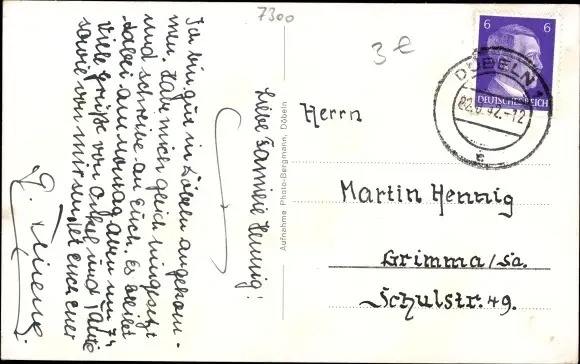 7300
3 €
Liebe Familie Hennig!
Ich bin gut in Döbeln angekom-
men. Habe mich gleich hingesetzt
und schreibe an Euch. Es bleibt
dabei am Montag aben um 74
Viele Grüße von Onkel und Tante
sowie von mir sendet euch euer
Aufnahme Photo-Bergmann, Döbeln
6 6
DEUTSCHES REICH
DÖBELN 1
22.6.42.-12
c
Herrn
Martin Hennig
Grimma/Sa.
Schulstr. 49.